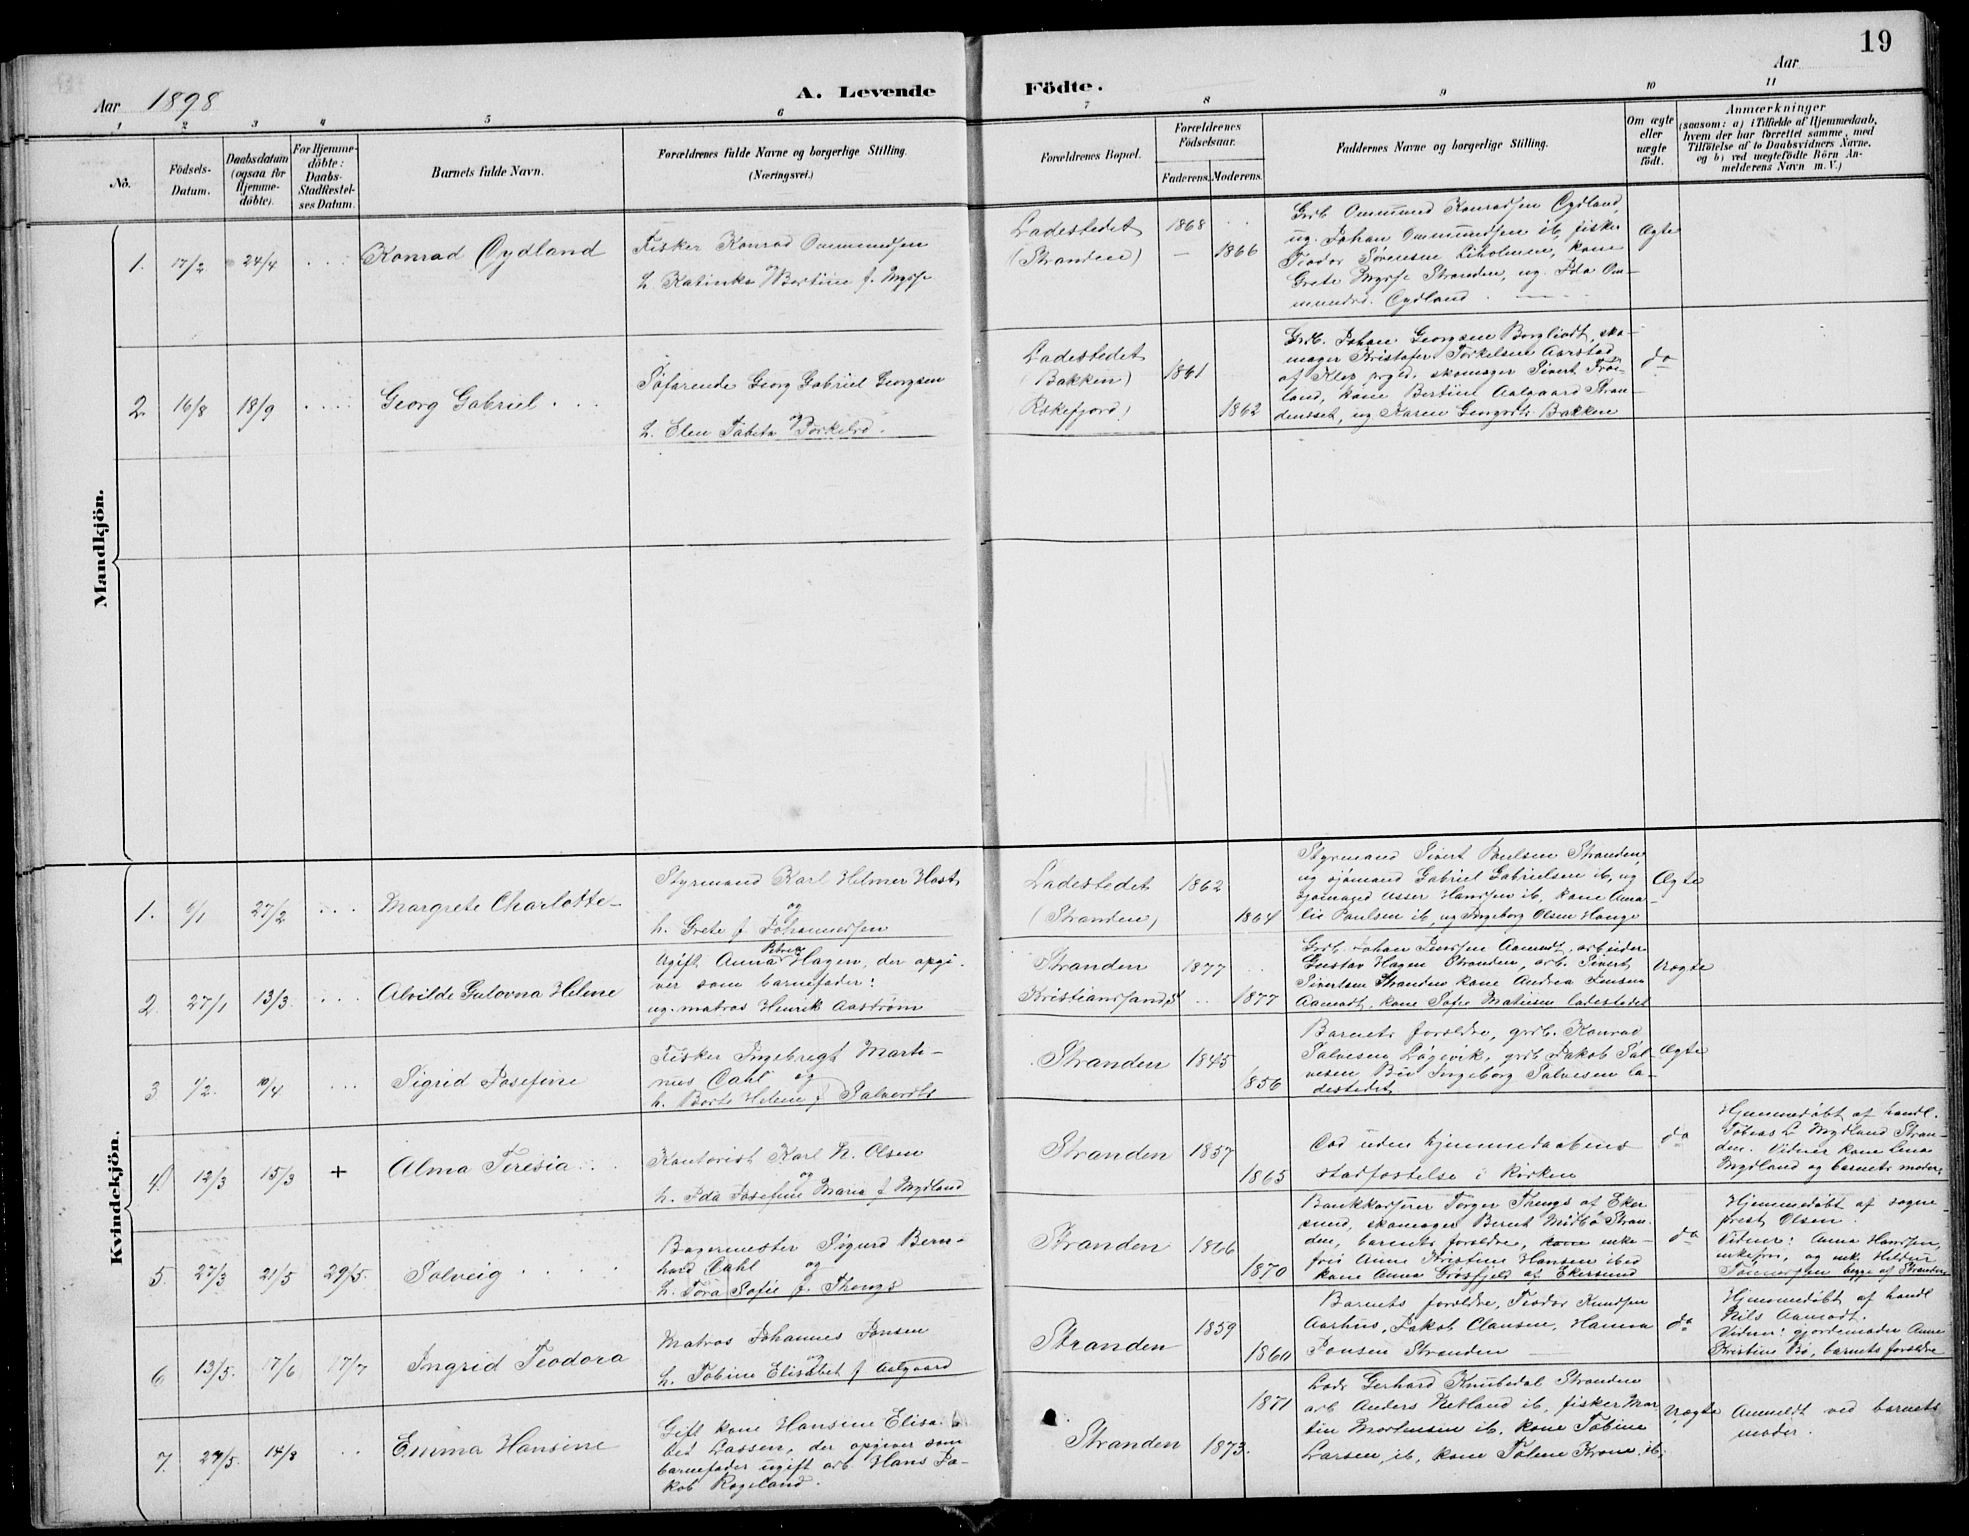 19
Aar 1898
A. Levende
Födte.
Aar
1 2 3 4 5 6 7 8 9 10 11
No.
Födsels-
Datum.
Daabsdatum
(ogsaa for
Hjemme-
döbte).
For Hjemme-
döbte:
Daabs-
Stadfæstel-
ses Datum.
Barnets fulde Navn.
Forældrenes fulde Navne og borgerlige Stilling.
(Næringsvei.)
Forældrenes Bopæl.
Forældrenes
Födselsaar.
Faderens. Moderens.
Faddernes Navne og borgerlige Stilling.
Om ægte
eller
uægte
födt.
Anmærkninger
(saasom: a) i Tilfælde af Hjemmedaab,
hvem der har forrettet samme, med
Tilföielse af to Daabsvidners Navne,
og b) ved uægtefödte Börn An-
melderens Navn m. V.)
Mandkjön.
1. 17/2 24/4 Konrad Oydland
Fisker Konrad Ommundsen
og
h. Katinka Bertine f. Mysse
Ladestedet
(Stranden)
1868
1866
Grdb. Ommund Konradsen Oydland,
ug. Johan Ommundsen ib, fisker
Teodor Sørensen Liholmen, kone
Grete Mysse Stranden, ug. Ida Om-
mundsd. Oydland
Ægte
2. 16/8 18/9 Georg Gabriel
Søfarende Georg Gabriel Georgsen
og
h. Elen Tabeta Torkelsd.
Ladestedet
(Bakken)
(Rekefjord)
1861
1862
Grdb. Johan Georgsen , sko-
mager Kristofer Torkelsen Aarstad
af Klep prgd, skomager Sivert Frøi-
land, kone Bertine Aalgaard Stran-
densset, ug Karen Georgsdtr Bakken
do
Kvindekjön.
1. 6/1 27/2 Margrete Charlotte
Styrmand Karl Helmer Høst
og
h. Grete f Johannessen
Ladestedet
(Stranden)
1862
1864
Styrmand Sivert Paulsen Stranden
ug sjømand Gabriel Gabrielsen ib, ug
sjømand Asser Hanssen ib, kone Ama-
lie Paulsen ib, ug Ingeborg Olsen Hauge
Ægte
2. 27/1 13/3 Alvilde Gulovna Helene
Ugift Anna Petrea Hagen, der opgi-
ver som barnefader:
ug. matros Henrik Aastrøm
Stranden
Kristianssand S
1877
1877
Grdb. Johan Jenssen Aamodt, arbeider
Gustav Hagen Stranden, arb. Sivert
Sivertsen Stranden kone Andrea Jensen
Aamodt, kone Sofie Matiesen ladestedet
Uægte
3 1/2. 10/4 Sigrid Josefine
Fisker Ingebregt Marti-
nius Dahl og
h. Berte Helene f Salvesdtr
Stranden
1845
1856
Barnets forældre, grdb. Konrad
Salvesen Løgevik, grdb Jakob Sal-
vesen Bø Ingeborg Salvesen La-
destedet
Ægte
4. 12/3 15/3 + Alma Teresia
Kontorist Karl N. Olsen
og
h. Ida Josefine Maria f Mydland
Stranden
1857
1865
Død uden hjemmedaabens
stadfæstelse i Kirken
do
Hjemmedøbt af handl.
Tobias L Mydland Stran-
den. Vidner kone Lena
Mydland og barnets moder
5. 27/3 21/5 29/5. Solveig
Bagermester Sigurd Bern-
hard Dahl og
h. Tora Sofie f. Thengs
Stranden
1866
1870
Bankkasserer Torger Thengs af Eker
sund, skomager Bernt Midbø Stran-
den, barnets forældre, enke-
frue Anne Kristine Hansen ibid
kone Anna Grøsfjeld af Ekersund
do
Hjemmedøbt af sogne
prest Olsen.
Vidner: Anna Hanssen,
enkefru, og enk. Heldine
Tønnessen begge af Stranden
6 13/5. 17/6 17/7 Ingrid Teodora
Matros Johannes Jonsen
og
h. Tobine Elisabet f Aalgaard
Stranden
1859
1860
Barnets forældre, Teodor Knudsen
Aarhus, Jakob Clausen, Hanna
Jonsen Stranden
do
Hjemmedøbt af handl
Nils Aamodt.
Vidner: gjordemoder Anne
Kristine Bø, barnets forældre
7. 27/5. 14/8 Emma Hansine
Gift kone Hansine Elisa-
bet Lassen, der opgiver som
barnefader ugift arb. Hans Ja-
kob Rogeland.
Stranden
1871
1873.
Lods Gerhard Knubedal Stranden
arb Anders Netland ib, fisker Mar
tin Mortensen ib, kone Tobine
Larsen ib, kone Tolene Krone ib
Uægte
Anmeldt ved barnets
moder.